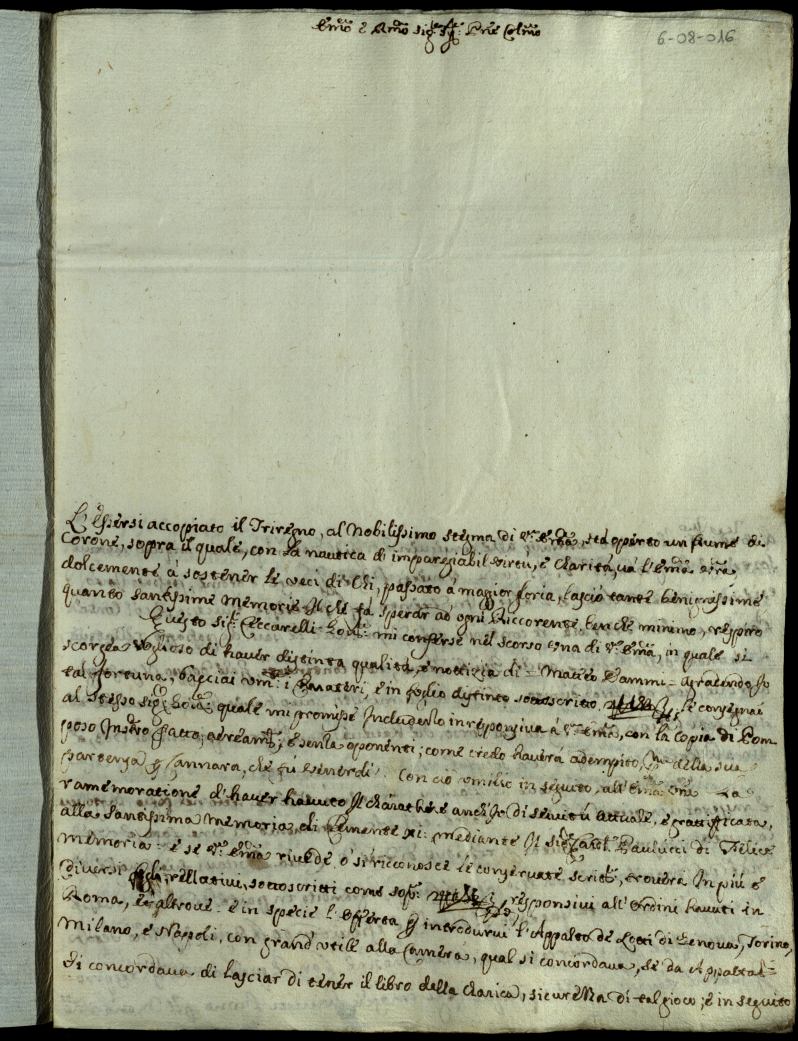 Em̃o e Rm̃o Sig. Sig: Pñe Colm̃o
6-08-016
L'essersi accopiato il Triregno, al Nobilissimo stegma di V. Em̃a, s'è aperto un fiume di
Corone, sopra il quale, con la nautica d'impareggiabil virtù, e Carità, và l'Em̃a
dolcemente à sostener le veci di Chi, passato à magior gloria, lasciò tante benignissime
quanto santissime memorie. Il che fa sperar ad ogni Riccorente, benche minimo, respiro
Questo sig. Ceccarelli mi conferse nel scorso una di V. Em̃a, in quale si
scorgea voglioso di haver distinta qualità, e nottizia di = Matteo Dammi = agratiendo Io
tal fortuna, bacciai i Caratteri, e in foglio distinto sottoscritto le consegnai
al stesso sig. quale mi promise Includerlo in responsiva à V. Em̃a, con la copia di
poso fatto, e senza oponenti; come credo haverà adempito, della sua
partenza Cannara, che fù Venerdì. Con ciò umilio in seguito, all' Em̃a La
ramemoratione d'haver havuto Il charathere anch'Io di servitù attuale, e grattifficata,
alla santissima memoria, di Clemente XI: mediante Il sig. Card. Paulucci di Felice
memoria: e se V. Em̃a riuede ò si riconosce le conseruate scrit, troverà In più e
diversi fogli rellativi, sottoscritti come sop. responsivi all'Ordini havuti in
Roma, et altrove: e in specie l'Offerta introdurvi l'Appalto de Lotti di Genova, Torino,
Milano, e Nappoli, con grand'utile alla Camera, qual si concordava, se da Appalta=
ti concordava di lasciar di tener il libro della Carica, sicurezza di tal gioco; e in seguito